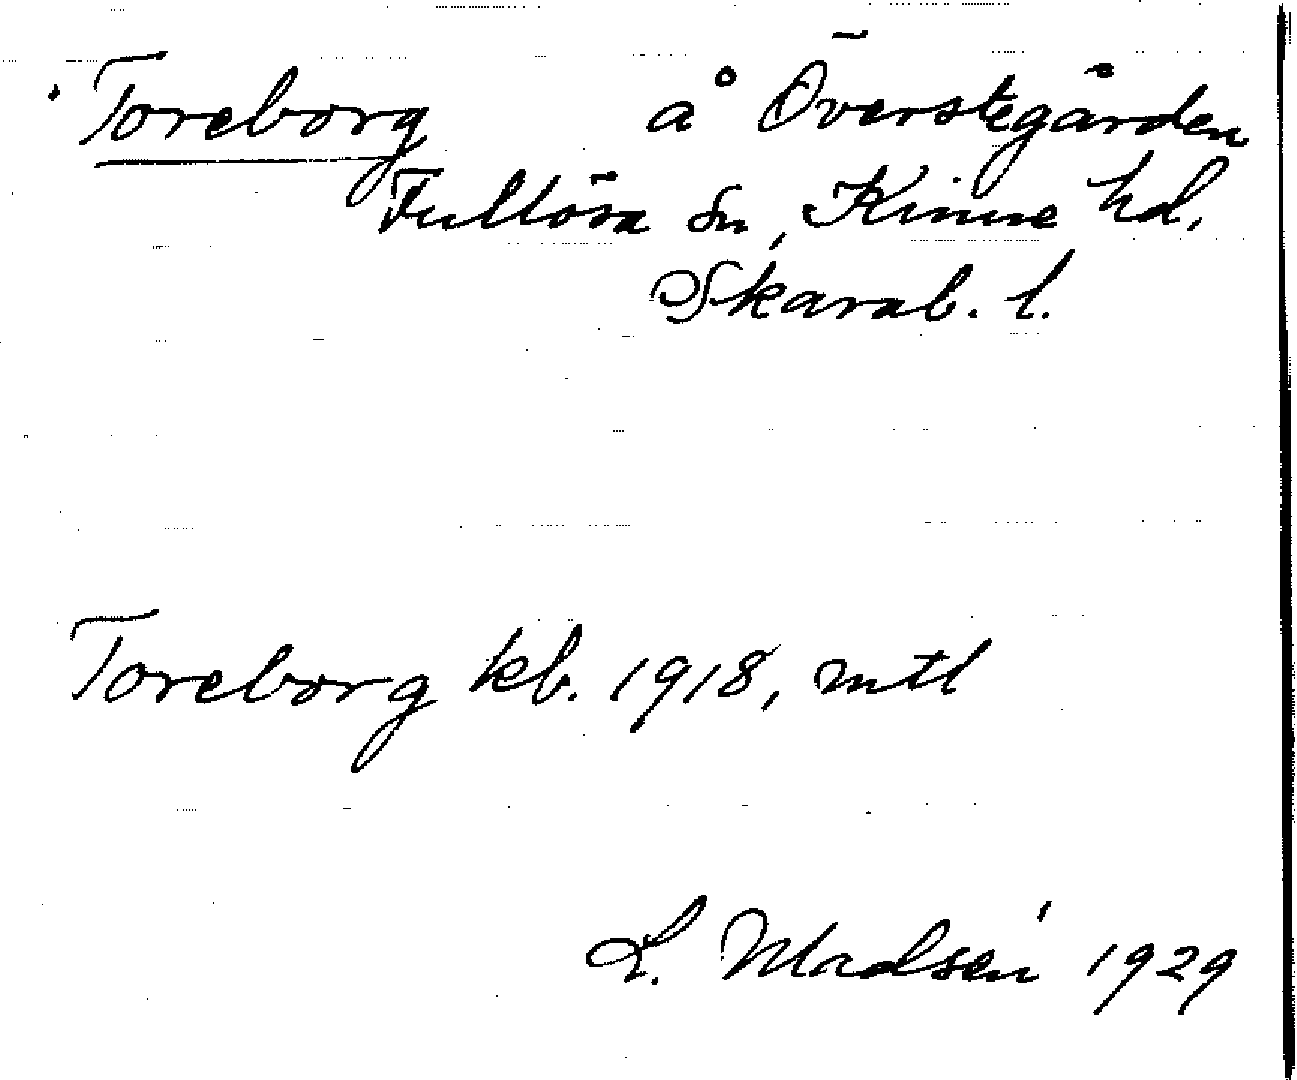 Toreborg å Överstegården
Fullösa sn, Kinne hd,
Skarab. l.
Toreborg kb. 1918, mtl
L. Madsén 1929